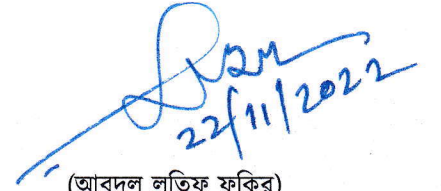 22/11/2022
(আবদুল লতিফ ফকির)